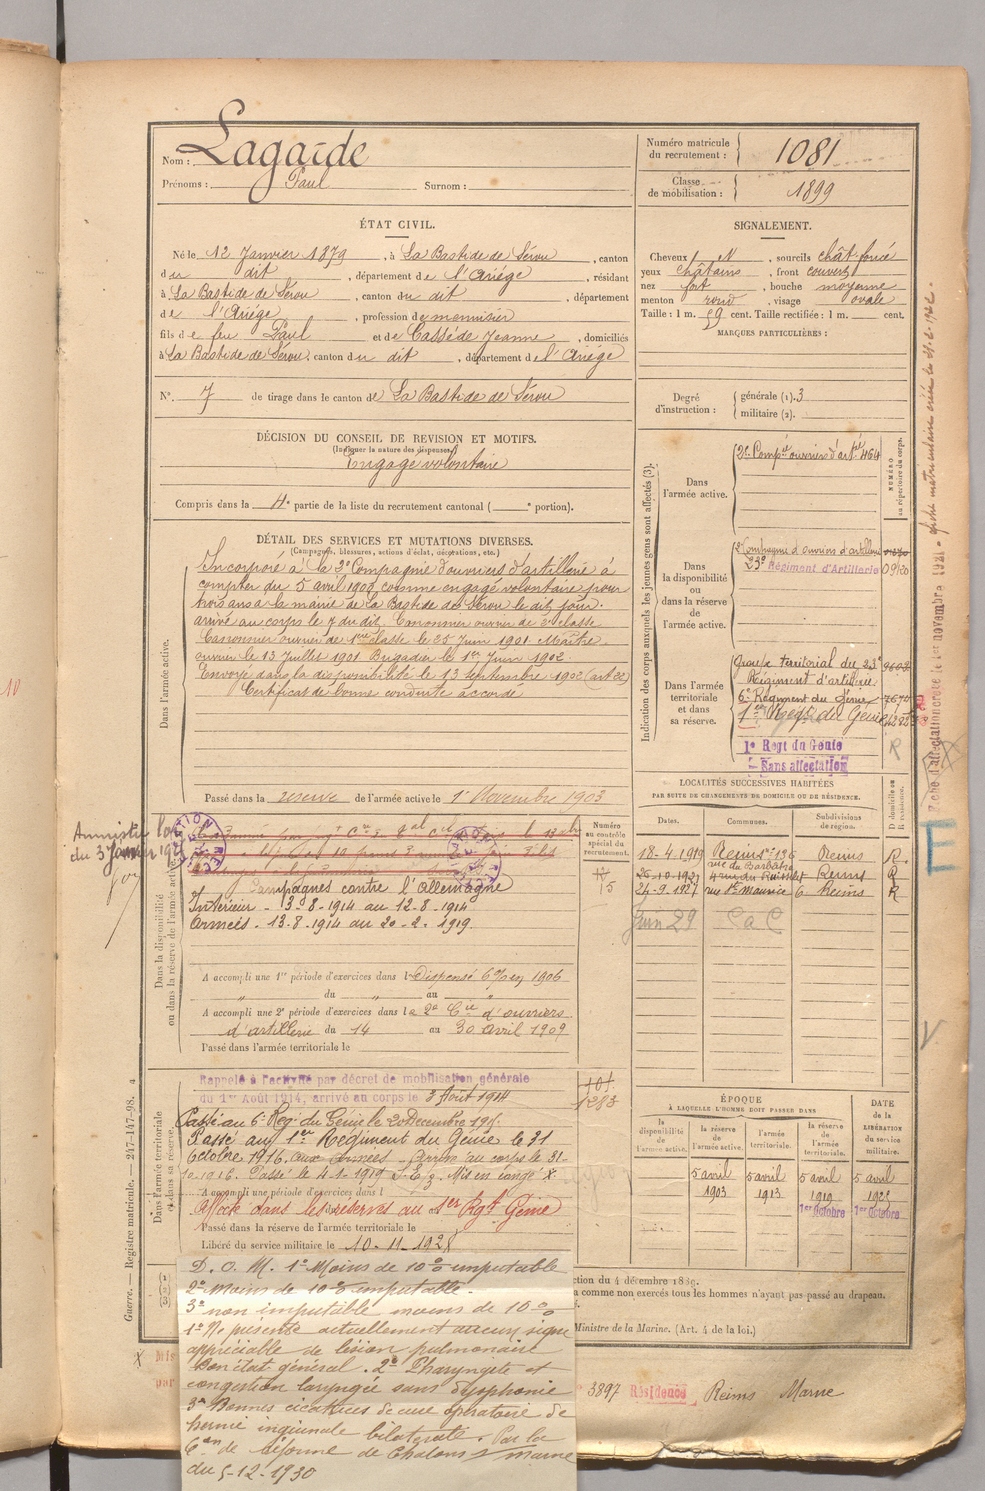 Nom : Lagarde
Prénoms : Paul Surnom :
Numéro matricule du recrutement : 1081
Classe de mobilisation : 1899
ÉTAT CIVIL.
Né le 12 Janvier 1879, à La Bastide de Sérou, canton
du dit, département de l'Ariège, résidant
à La Bastide de Sérou, canton du dit, département
de l'Ariège, profession de menuisier
fils de feu Paul et de Casséde Jeanne, domiciliés
à La Bastide de Sérou, canton du dit, département de l'Ariège
N° 7 de tirage dans le canton de La Bastide de Sérou
SIGNALEMENT.
Cheveux N, sourcils chât. foncé
yeux châtains, front couvert
nez fort, bouche moyenne
menton rond, visage ovale
Taille : 1 m. 59 cent. Taille rectifiée : 1 m. cent.
MARQUES PARTICULIÈRES :
Degré d'instruction : générale (1). 3
militaire (2).
DÉCISION DU CONSEIL DE REVISION ET MOTIFS.
(Indiquer la nature des dispenses.)
Engagé volontaire
Compris dans la 4e partie de la liste du recrutement cantonal ( e portion).
DÉTAIL DES SERVICES ET MUTATIONS DIVERSES.
(Campagnes, blessures, actions d'éclat, décorations, etc.)
Dans l'armée active.
Incorporé à la Compagnie d'ouvriers d'artillerie à
compter du 5 avril comme engagé volontaire pour
trois ans à la mairie de La Bastide de Sérou le dit jour.
arrivé au corps le 7 du dit. ouvrier de 2e classe
ouvrier de 1ère classe le 25 Juin 1901 Maître
ouvrier le 13 Juillet 1901 Brigadier le 1er Juin 1902.
Envoyé dans la disponibilité le 13 septembre 1902
Certificat de bonne conduite accordé
Passé dans la réserve de l'armée active le 1er Novembre 1903
Indication des corps auxquels les jeunes gens sont affectés (3).
NUMÉRO au répertoire du corps.
Dans l'armée active.
2e Compie ouvriers d'artie 464
Dans la disponibilité ou dans la réserve de l'armée active.
2e Compagnie d'ouvriers d'artillerie
23e Régiment d'Artillerie
Dans l'armée territoriale et dans sa réserve.
Groupe territorial du 23e
Régiment d'artillerie
6e Régiment du Génie 7670
1er Regt du Génie
1e Regt du Génie
Sans affectation
LOCALITÉS SUCCESSIVES HABITÉES
PAR SUITE DE CHANGEMENTS DE DOMICILE OU DE RÉSIDENCE.
Dates. Communes. Subdivisions de région. D domicile ou R résidence.
18-4-1919 Reims rue du Barbatre Reims R
Reims R
24-9-1927 rue St Maurice 6 Reims R
Juin 29 C a C
Numéro au contrôle spécial du recrutement.
15
Dans la disponibilité ou dans la réserve de l'armée active.
Campagnes contre l'Allemagne
Intérieur - 3-8-1914 au 12-8-1914
Armées - 13-8-1914 au 20-2-1919.
A accompli une 1re période d'exercices dans l Dispensé 1906
du " au "
A accompli une 2e période d'exercices dans la 2e Cie d'ouvriers
d'artillerie du 14 au 30 avril 1909
Passé dans l'armée territoriale le
Dans l'armée territoriale et dans sa réserve.
Rappelé à l'activité par décret de mobilisation générale
du 1er Août 1914, arrivé au corps le 3 Août 1914
Passé au 6e Reg. du Génie le 20 Décembre
Passé au 1er Régiment du Génie le 31
Octobre 1916. aux Armées
Passé le 4-1-1919 Mis en congé
A accompli une période d'exercices dans l
Affecté dans les réserves au 1er Rgt Génie
Passé dans la réserve de l'armée territoriale le
Libéré du service militaire le 10-11-1928
ÉPOQUE
À LAQUELLE L'HOMME DOIT PASSER DANS
la disponibilité de l'armée active. la réserve de l'armée active. l'armée territoriale. la réserve de l'armée territoriale. DATE de la LIBÉRATION du service militaire.
5 avril 1903 5 avril 1913 5 avril 1919 5 avril 1925
1er Octobre 1er Octobre
D. O. M. 1° Moins de 10% imputable
2° Moins de 10% imputable.
3° non imputable moins de 10%
1° Ne présente actuellement aucun signe
appréciable de lésion pulmonaire
Bon état général. 2° Pharyngite et
congestion laryngée sans dysphonie
3° Bonnes cicatrices de cure opératoire de
hernie inguinale bilatérale. Par la
Con de Réforme de Chalons s/ Marne
du 5-12-1930
ction du 4 décembre 1889.
a comme non exercés tous les hommes n'ayant pas passé au drapeau.
Ministre de la Marine. (Art. 4 de la loi.)
3897 Résidence Reims Marne
Guerre. — Registre matricule. — 247-147-98. 4
Amnistié
du 3 Janvier